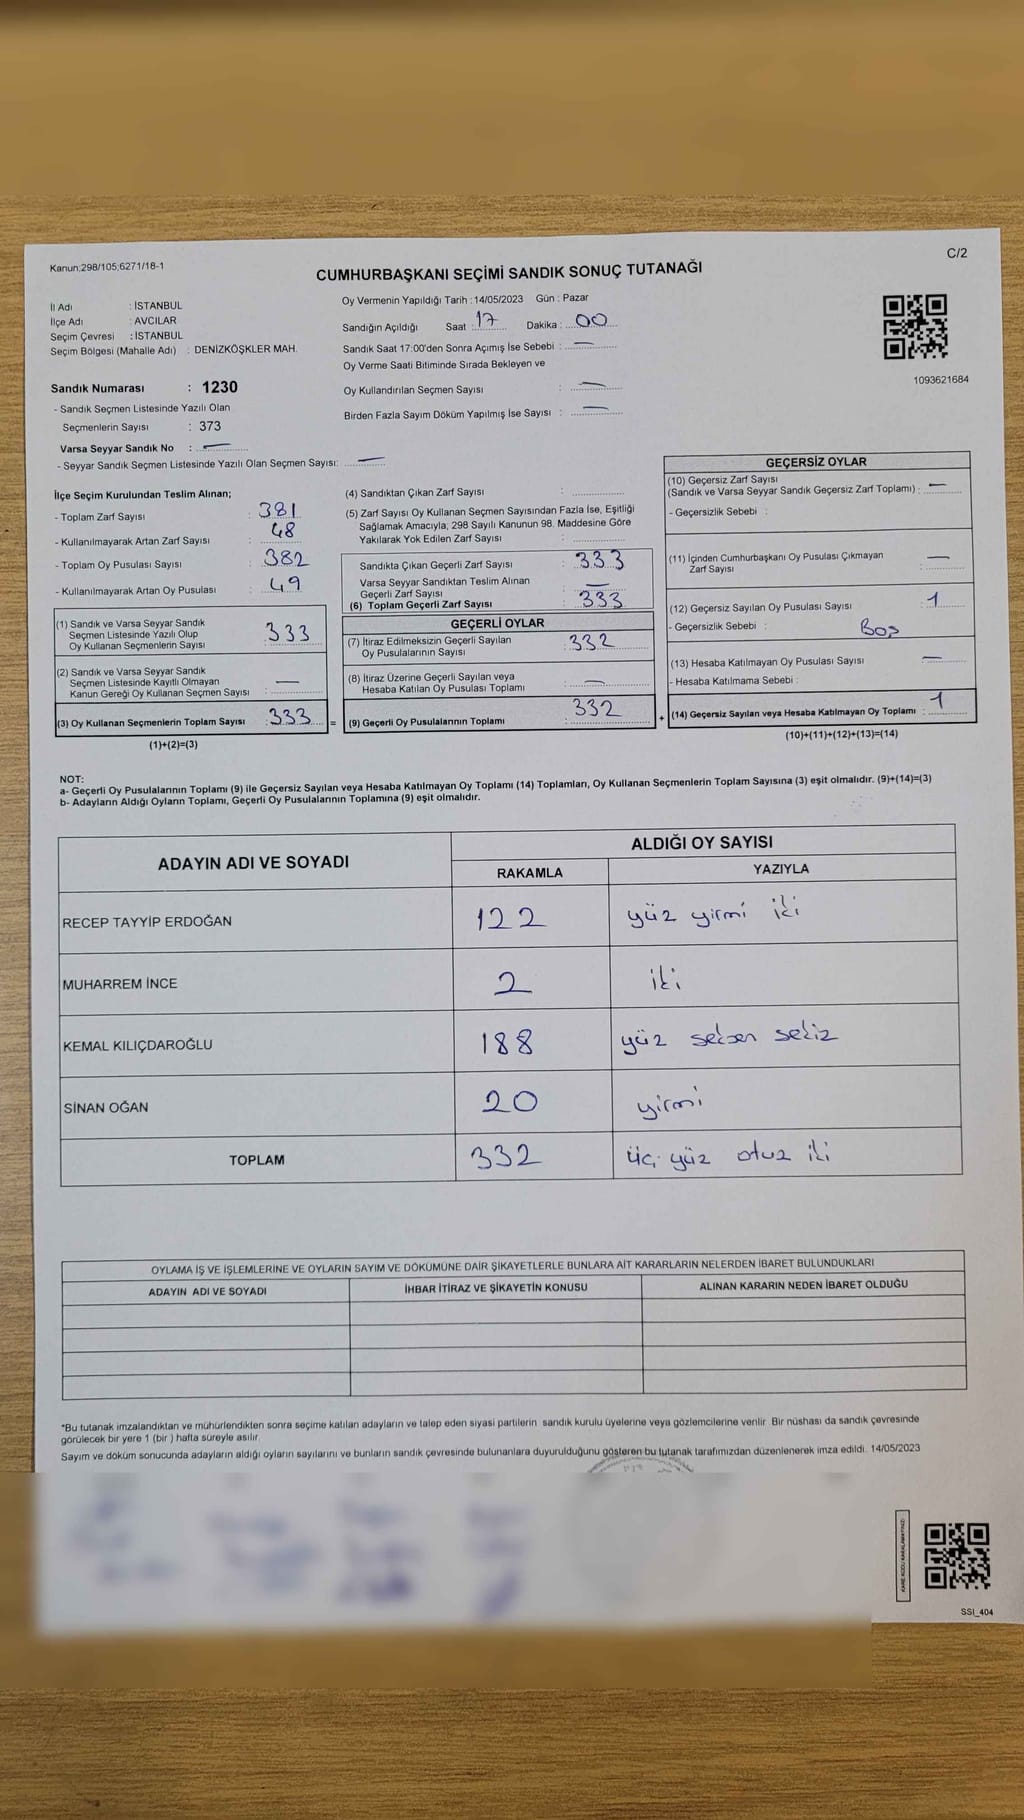 Kanun:298/105;6271/18-1
C/2
CUMHURBAŞKANI SEÇİMİ SANDIK SONUÇ TUTANAĞI
İl Adı : İSTANBUL
İlçe Adı : AVCILAR
Seçim Çevresi : İSTANBUL
Seçim Bölgesi (Mahalle Adı) : DENİZKÖŞKLER MAH.
Oy Vermenin Yapıldığı Tarih : 14/05/2023 Gün : Pazar
Sandığın Açıldığı Saat : 17 Dakika : 00
Sandık Saat 17:00'den Sonra Açımış İse Sebebi : —
Oy Verme Saati Bitiminde Sırada Bekleyen ve
Oy Kullandırılan Seçmen Sayısı : —
Birden Fazla Sayım Döküm Yapılmış İse Sayısı : —
1093621684
Sandık Numarası : 1230
- Sandık Seçmen Listesinde Yazılı Olan
Seçmenlerin Sayısı : 373
Varsa Seyyar Sandık No : —
- Seyyar Sandık Seçmen Listesinde Yazılı Olan Seçmen Sayısı: —
İlçe Seçim Kurulundan Teslim Alınan;
- Toplam Zarf Sayısı : 381
- Kullanılmayarak Artan Zarf Sayısı : 48
- Toplam Oy Pusulası Sayısı : 382
- Kullanılmayarak Artan Oy Pusulası : 49
(1) Sandık ve Varsa Seyyar Sandık
Seçmen Listesinde Yazılı Olup
Oy Kullanan Seçmenlerin Sayısı : 333
(2) Sandık ve Varsa Seyyar Sandık
Seçmen Listesinde Kayıtlı Olmayan
Kanun Gereği Oy Kullanan Seçmen Sayısı : —
(3) Oy Kullanan Seçmenlerin Toplam Sayısı : 333 =
(1)+(2)=(3)
(4) Sandıktan Çıkan Zarf Sayısı :
(5) Zarf Sayısı Oy Kullanan Seçmen Sayısından Fazla İse, Eşitliği
Sağlamak Amacıyla, 298 Sayılı Kanunun 98. Maddesine Göre
Yakılarak Yok Edilen Zarf Sayısı :
Sandıkta Çıkan Geçerli Zarf Sayısı : 333
Varsa Seyyar Sandıktan Teslim Alınan
Geçerli Zarf Sayısı : —
(6) Toplam Geçerli Zarf Sayısı : 333
GEÇERLİ OYLAR
(7) İtiraz Edilmeksizin Geçerli Sayılan
Oy Pusulalarının Sayısı : 332
(8) İtiraz Üzerine Geçerli Sayılan veya
Hesaba Katılan Oy Pusulası Toplamı : —
(9) Geçerli Oy Pusulalarının Toplamı : 332 +
GEÇERSİZ OYLAR
(10) Geçersiz Zarf Sayısı
(Sandık ve Varsa Seyyar Sandık Geçersiz Zarf Toplamı) : —
- Geçersizlik Sebebi :
(11) İçinden Cumhurbaşkanı Oy Pusulası Çıkmayan
Zarf Sayısı : —
(12) Geçersiz Sayılan Oy Pusulası Sayısı : 1
- Geçersizlik Sebebi : Boş
(13) Hesaba Katılmayan Oy Pusulası Sayısı : —
- Hesaba Katılmama Sebebi :
(14) Geçersiz Sayılan veya Hesaba Katılmayan Oy Toplamı : 1
(10)+(11)+(12)+(13)=(14)
NOT:
a- Geçerli Oy Pusulalarının Toplamı (9) ile Geçersiz Sayılan veya Hesaba Katılmayan Oy Toplamı (14) Toplamları, Oy Kullanan Seçmenlerin Toplam Sayısına (3) eşit olmalıdır. (9)+(14)=(3)
b- Adayların Aldığı Oyların Toplamı, Geçerli Oy Pusulalarının Toplamına (9) eşit olmalıdır.
ADAYIN ADI VE SOYADI
ALDIĞI OY SAYISI
RAKAMLA YAZIYLA
RECEP TAYYİP ERDOĞAN 122 yüz yirmi iki
MUHARREM İNCE 2 iki
KEMAL KILIÇDAROĞLU 188 yüz seksen sekiz
SİNAN OĞAN 20 yirmi
TOPLAM 332 üç yüz otuz iki
OYLAMA İŞ VE İŞLEMLERİNE VE OYLARIN SAYIM VE DÖKÜMÜNE DAİR ŞİKAYETLERLE BUNLARA AİT KARARLARIN NELERDEN İBARET BULUNDUKLARI
ADAYIN ADI VE SOYADI İHBAR İTİRAZ VE ŞİKAYETİN KONUSU ALINAN KARARIN NEDEN İBARET OLDUĞU
*Bu tutanak imzalandıktan ve mühürlendikten sonra seçime katılan adayların ve talep eden siyasi partilerin sandık kurulu üyelerine veya gözlemcilerine verilir. Bir nüshası da sandık çevresinde
görülecek bir yere 1 (bir ) hafta süreyle asılır.
Sayım ve döküm sonucunda adayların aldığı oyların sayılarını ve bunların sandık çevresinde bulunanlara duyurulduğunu gösteren bu tutanak tarafımızdan düzenlenerek imza edildi. 14/05/2023
SSI_404